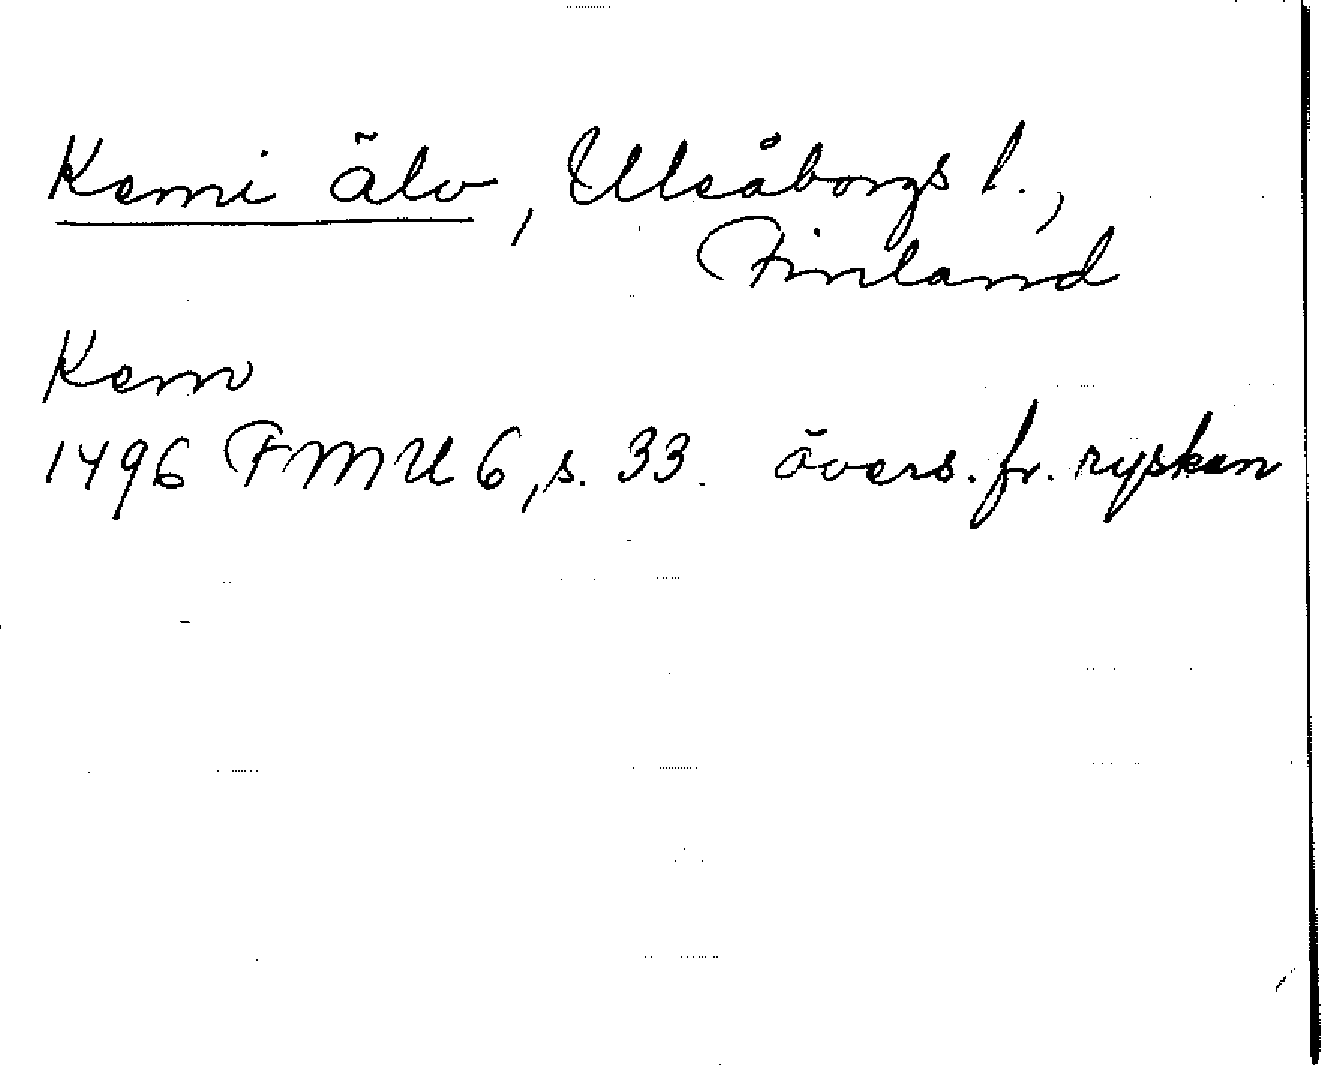 Kemi älv, Uleåborgs l.,
Finland
Kem
1496 FMU 6, s. 33. övers. fr. ryskan